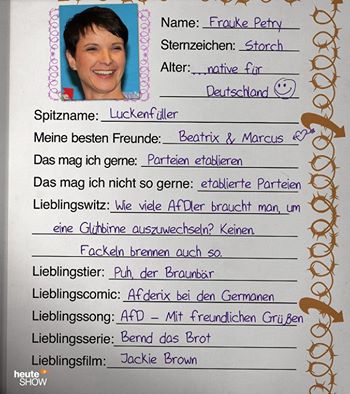 Name: Frauke Petry
Sternzeichen: Storch
Alter: ...native für
Deutschland
Spitzname: Luckenfüller
Meine besten Freunde: Beatrix & Marcus
Das mag ich gerne: Parteien etablieren
Das mag ich nicht so gerne: etablierte Parteien
Lieblingswitz: Wie viele AfDler braucht man, um
eine Glühbirne auszuwechseln? Keinen.
Fackeln brennen auch so.
Lieblingstier: Puh, der Braunbär
Lieblingscomic: Afderix bei den Germanen
Lieblingssong: AfD – Mit freundlichen Grüßen
Lieblingsserie: Bernd das Brot
Lieblingsfilm: Jackie Brown
heute
SHOW